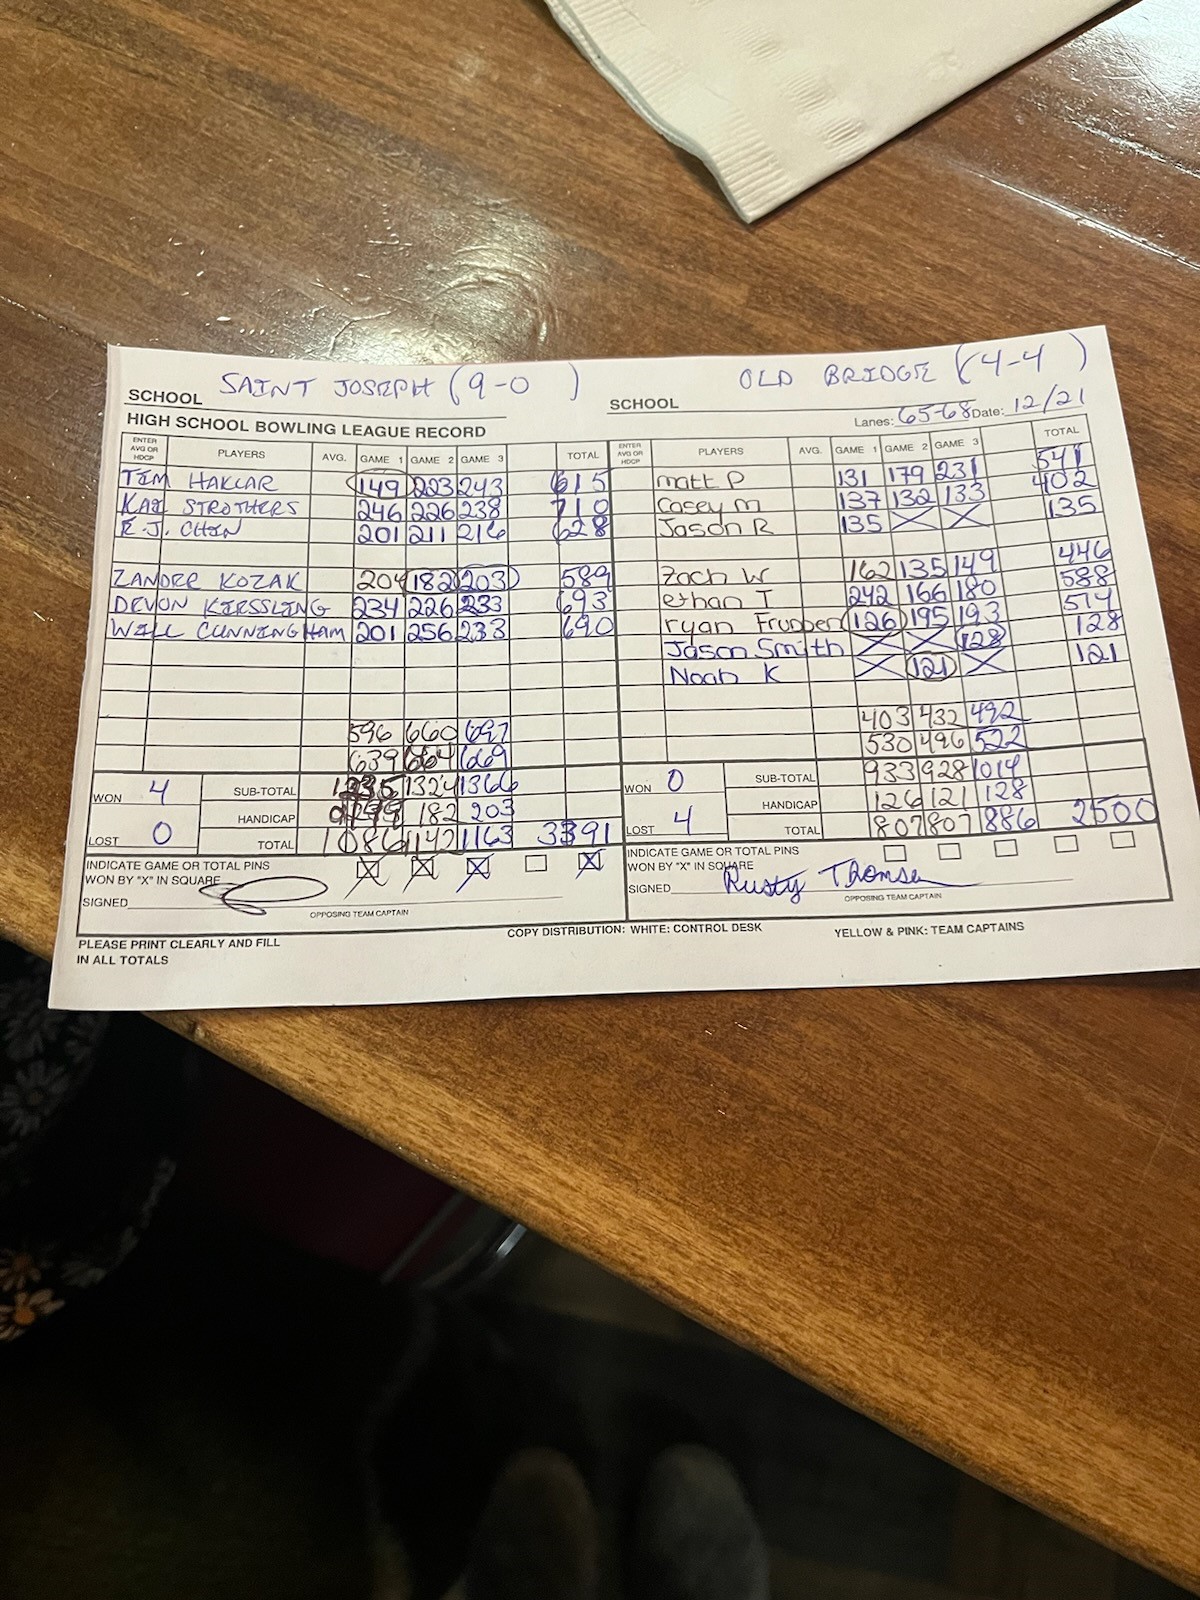 SCHOOL SAINT JOSEPH (9-0) SCHOOL OLD BRIDGE (4-4)
HIGH SCHOOL BOWLING LEAGUE RECORD Lanes: 65-68 Date: 12/21
ENTER AVG OR HDCP PLAYERS AVG. GAME 1 GAME 2 GAME 3 TOTAL ENTER AVG OR HDCP PLAYERS AVG. GAME 1 GAME 2 GAME 3 TOTAL
TIM HAKLAR 149 223 243 615 matt P 131 179 231 541
KAI STROTHERS 246 226 238 710 Casey m 137 132 133 402
E.J. CHIN 201 211 216 628 Jason R 135 X X 135
ZANDER KOZAK 204 182 203 589 Zach W 162 135 149 446
DEVON KIESSLING 234 226 233 693 ethan T 242 166 180 588
WILL CUNNINGHAM 201 256 233 690 ryan 126 195 193 514
Jason Smith X X 128 128
Noah K X 121 X 121
596 660 697 403 432 492
639 664 669 530 496 522
WON 4 SUB-TOTAL 1235 1324 1366 WON 0 SUB-TOTAL 933 928 1014
HANDICAP 182 203 HANDICAP 126 121 128
LOST 0 TOTAL 1086 1142 1163 3391 LOST 4 TOTAL 807 807 886 2500
INDICATE GAME OR TOTAL PINS WON BY "X" IN SQUARE X X X X INDICATE GAME OR TOTAL PINS WON BY "X" IN SQUARE
SIGNED SIGNED Rusty Thomsen
OPPOSING TEAM CAPTAIN OPPOSING TEAM CAPTAIN
PLEASE PRINT CLEARLY AND FILL IN ALL TOTALS COPY DISTRIBUTION: WHITE: CONTROL DESK YELLOW & PINK: TEAM CAPTAINS